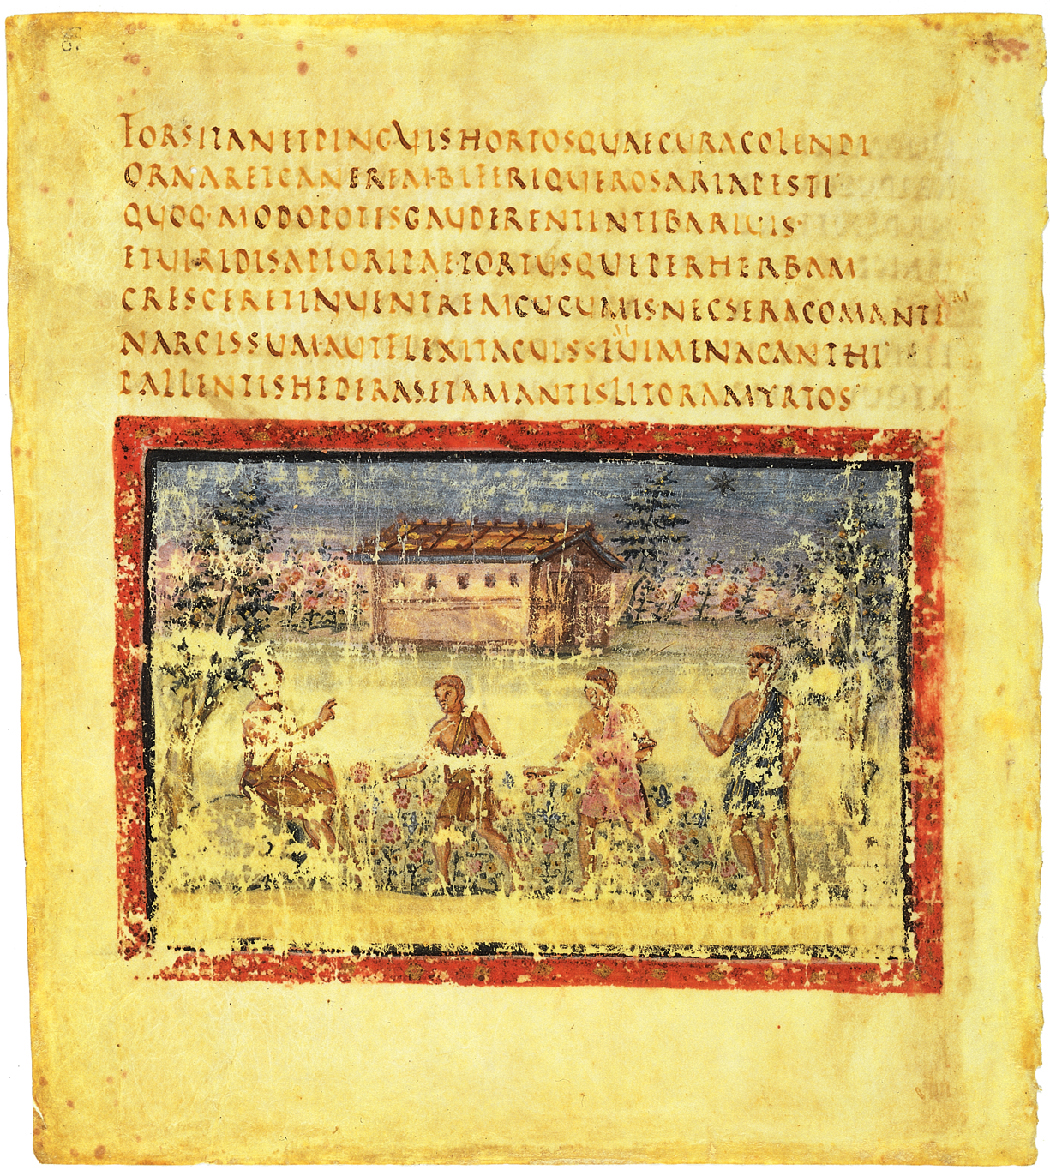 FORSITANETPINGUISHORTOSQUAECURACOLENDI
ORNARETCANEREM·BIFERIQUEROSARIAPESTI
QUOQ·MODOPOTISGAUDERENTINTIBARIUIS
ETUIRIDISAPIORIPAETORTUSQUEPERHERBAM
CRESCERETINUENTREMCUCUMISNECSERACOMANTEM
NARCISSUMAUTFLEXITACUISSEUIMENACANTHI
PALLENTISHEDERASETAMANTISLITORAMYRTOS